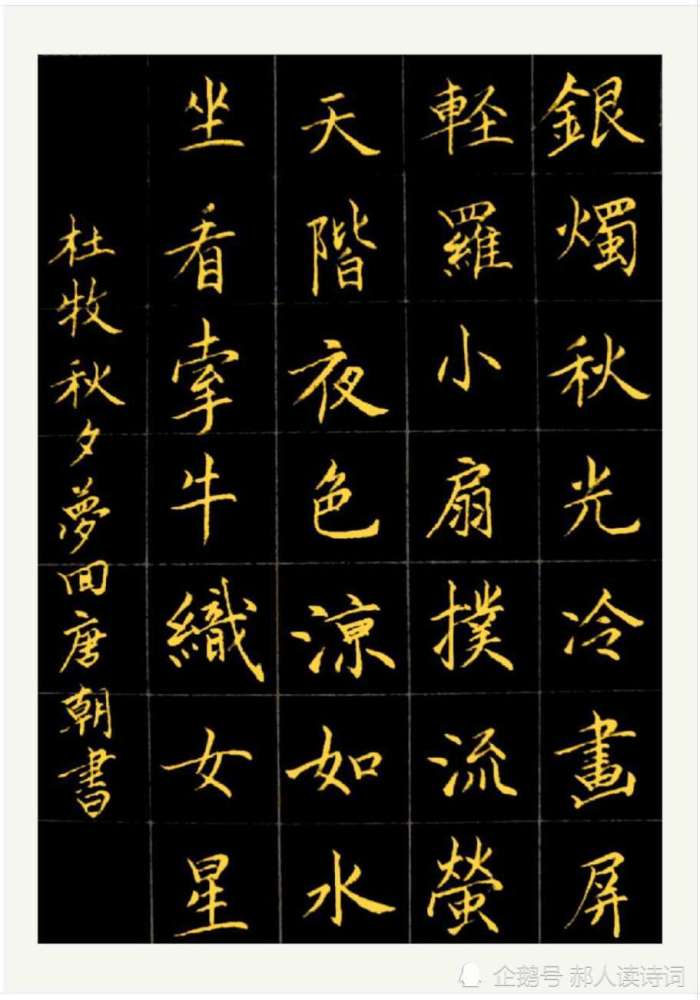 銀燭秋光冷畫屏
軽羅小扇撲流螢
天階夜色涼如水
坐看牽牛織女星
杜牧秋夕夢回唐朝書
企鹅号 郝人读诗词